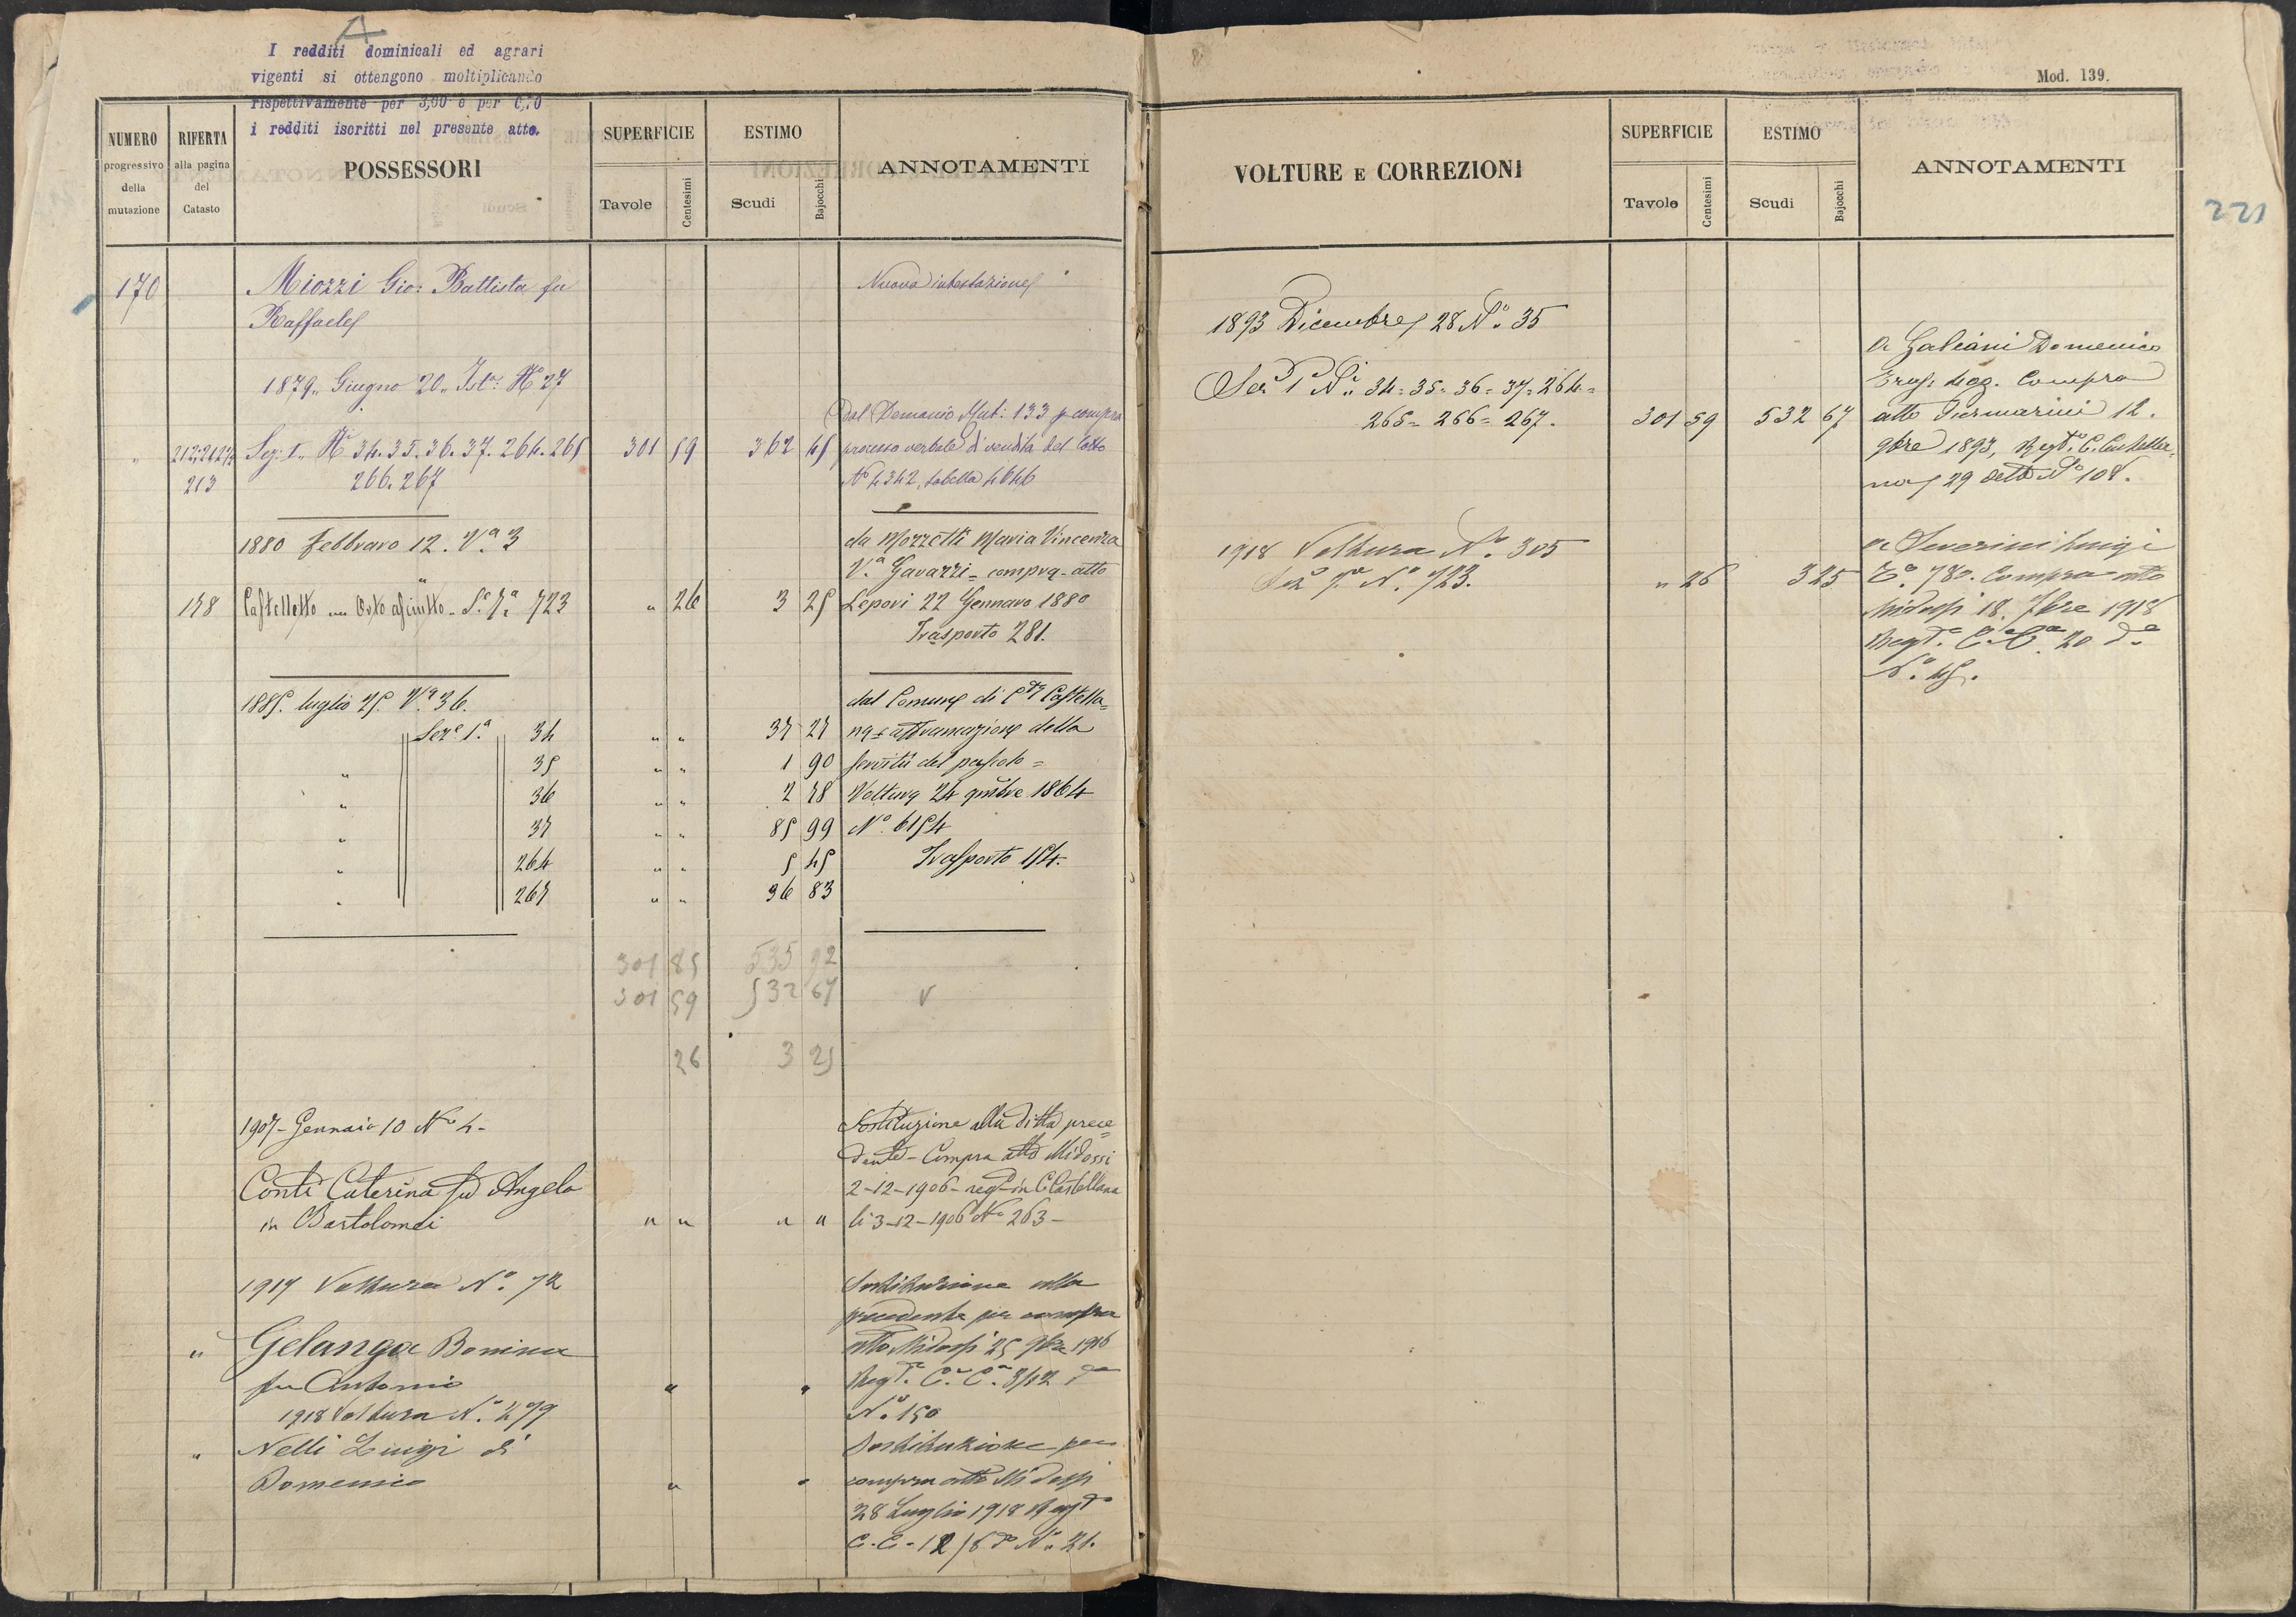 A
I redditi dominicali ed agrari
vigenti si ottengono moltiplicando
rispettivamente per 3,00 e per 0,70
i redditi iscritti nel presente atto.
NUMERO
progressivo
della
mutazione
RIFERTA
alla pagina
del
Catasto
POSSESSORI
SUPERFICIE
Tavole
Centesimi
ESTIMO
Scudi
Bajocchi
ANNOTAMENTI
170
Miozzi Gio: Battista fu
Nuova intestazione
Raffaele
1879. Giugno 20. Ist: N° 27
Dal Demanio Mut: 133 p compra
212, 212 1/2 Sez: I. N° 34. 35. 36. 37. 264. 265 301 59 362 45 processo verbale di vendita del lotto
213 266. 267 N° 4342, tabella 4646
1880 Febbraro 12. Va. 3
da Mozzetti Maria Vincenza
Va. Gavazzi = compra = atto
158 Castelletto Orto asciutto Se. 7a 723 " 26 3 25 Lepori 22 Gennaro 1880
Trasporto 281.
1885. luglio 25. Va. 36.
dal Comune di Cta Castella=
Seze. 1a. 34 " " 37 27 na = affrancazione della
" 35 " " 1 90 servitù del pascolo =
" 36 " " 2 78 Voltura 24 9mbre 1864
" 37 " " 85 99 N° 6154
" 264 " " 5 45 Trasporto 154.
" 267 " " 36 83
301 85 535 92
301 59 532 67 V
26 3 25
1907 - Gennaio 10 N° 4 -
Sostituzione alla ditta prece=
dente - Compra atto Midossi
Conti Caterina fu Angelo
2-12-1906 - regto in C. Castellana
in Bartolomei " " " " li 3-12-1906 N° 263 -
1917 Voltura N°. 72
Sostituzione alla
precedente per compra
" Gelanga Bonina
atto Midossi 25 9bre 1916
fu Antonio " " Regto. Ca. Ca. 3/12 do
1918 Voltura N°. 279
N° 150
" Nelli Luigi di
Sostituzione per
Domenico " " compra atto Midossi
28 Luglio 1918 Regto
C. C. 12/8 do N° 21.
Mod. 139.
VOLTURE E CORREZIONI
SUPERFICIE
Tavole
Centesimi
ESTIMO
Scudi
Bajocchi
ANNOTAMENTI
221
1893 Dicembre 28 N°. 35
a Galiani Domenico
Sez 1a Ni. 34 = 35 = 36 = 37 = 264 =
265 = 266 = 267. 301 59 532 67 atto Piermarini 12.
9bre 1893, Regto. C. Castella=
na 29 detto N° 108.
1918 Voltura N°. 305
a Severini Luigi
Sez 7a N°. 723. " 26 3 25 To. 780. Compra atto
Midossi 18. 7bre 1918
Regto. Ca. Ca. 20 do
N°. 45.